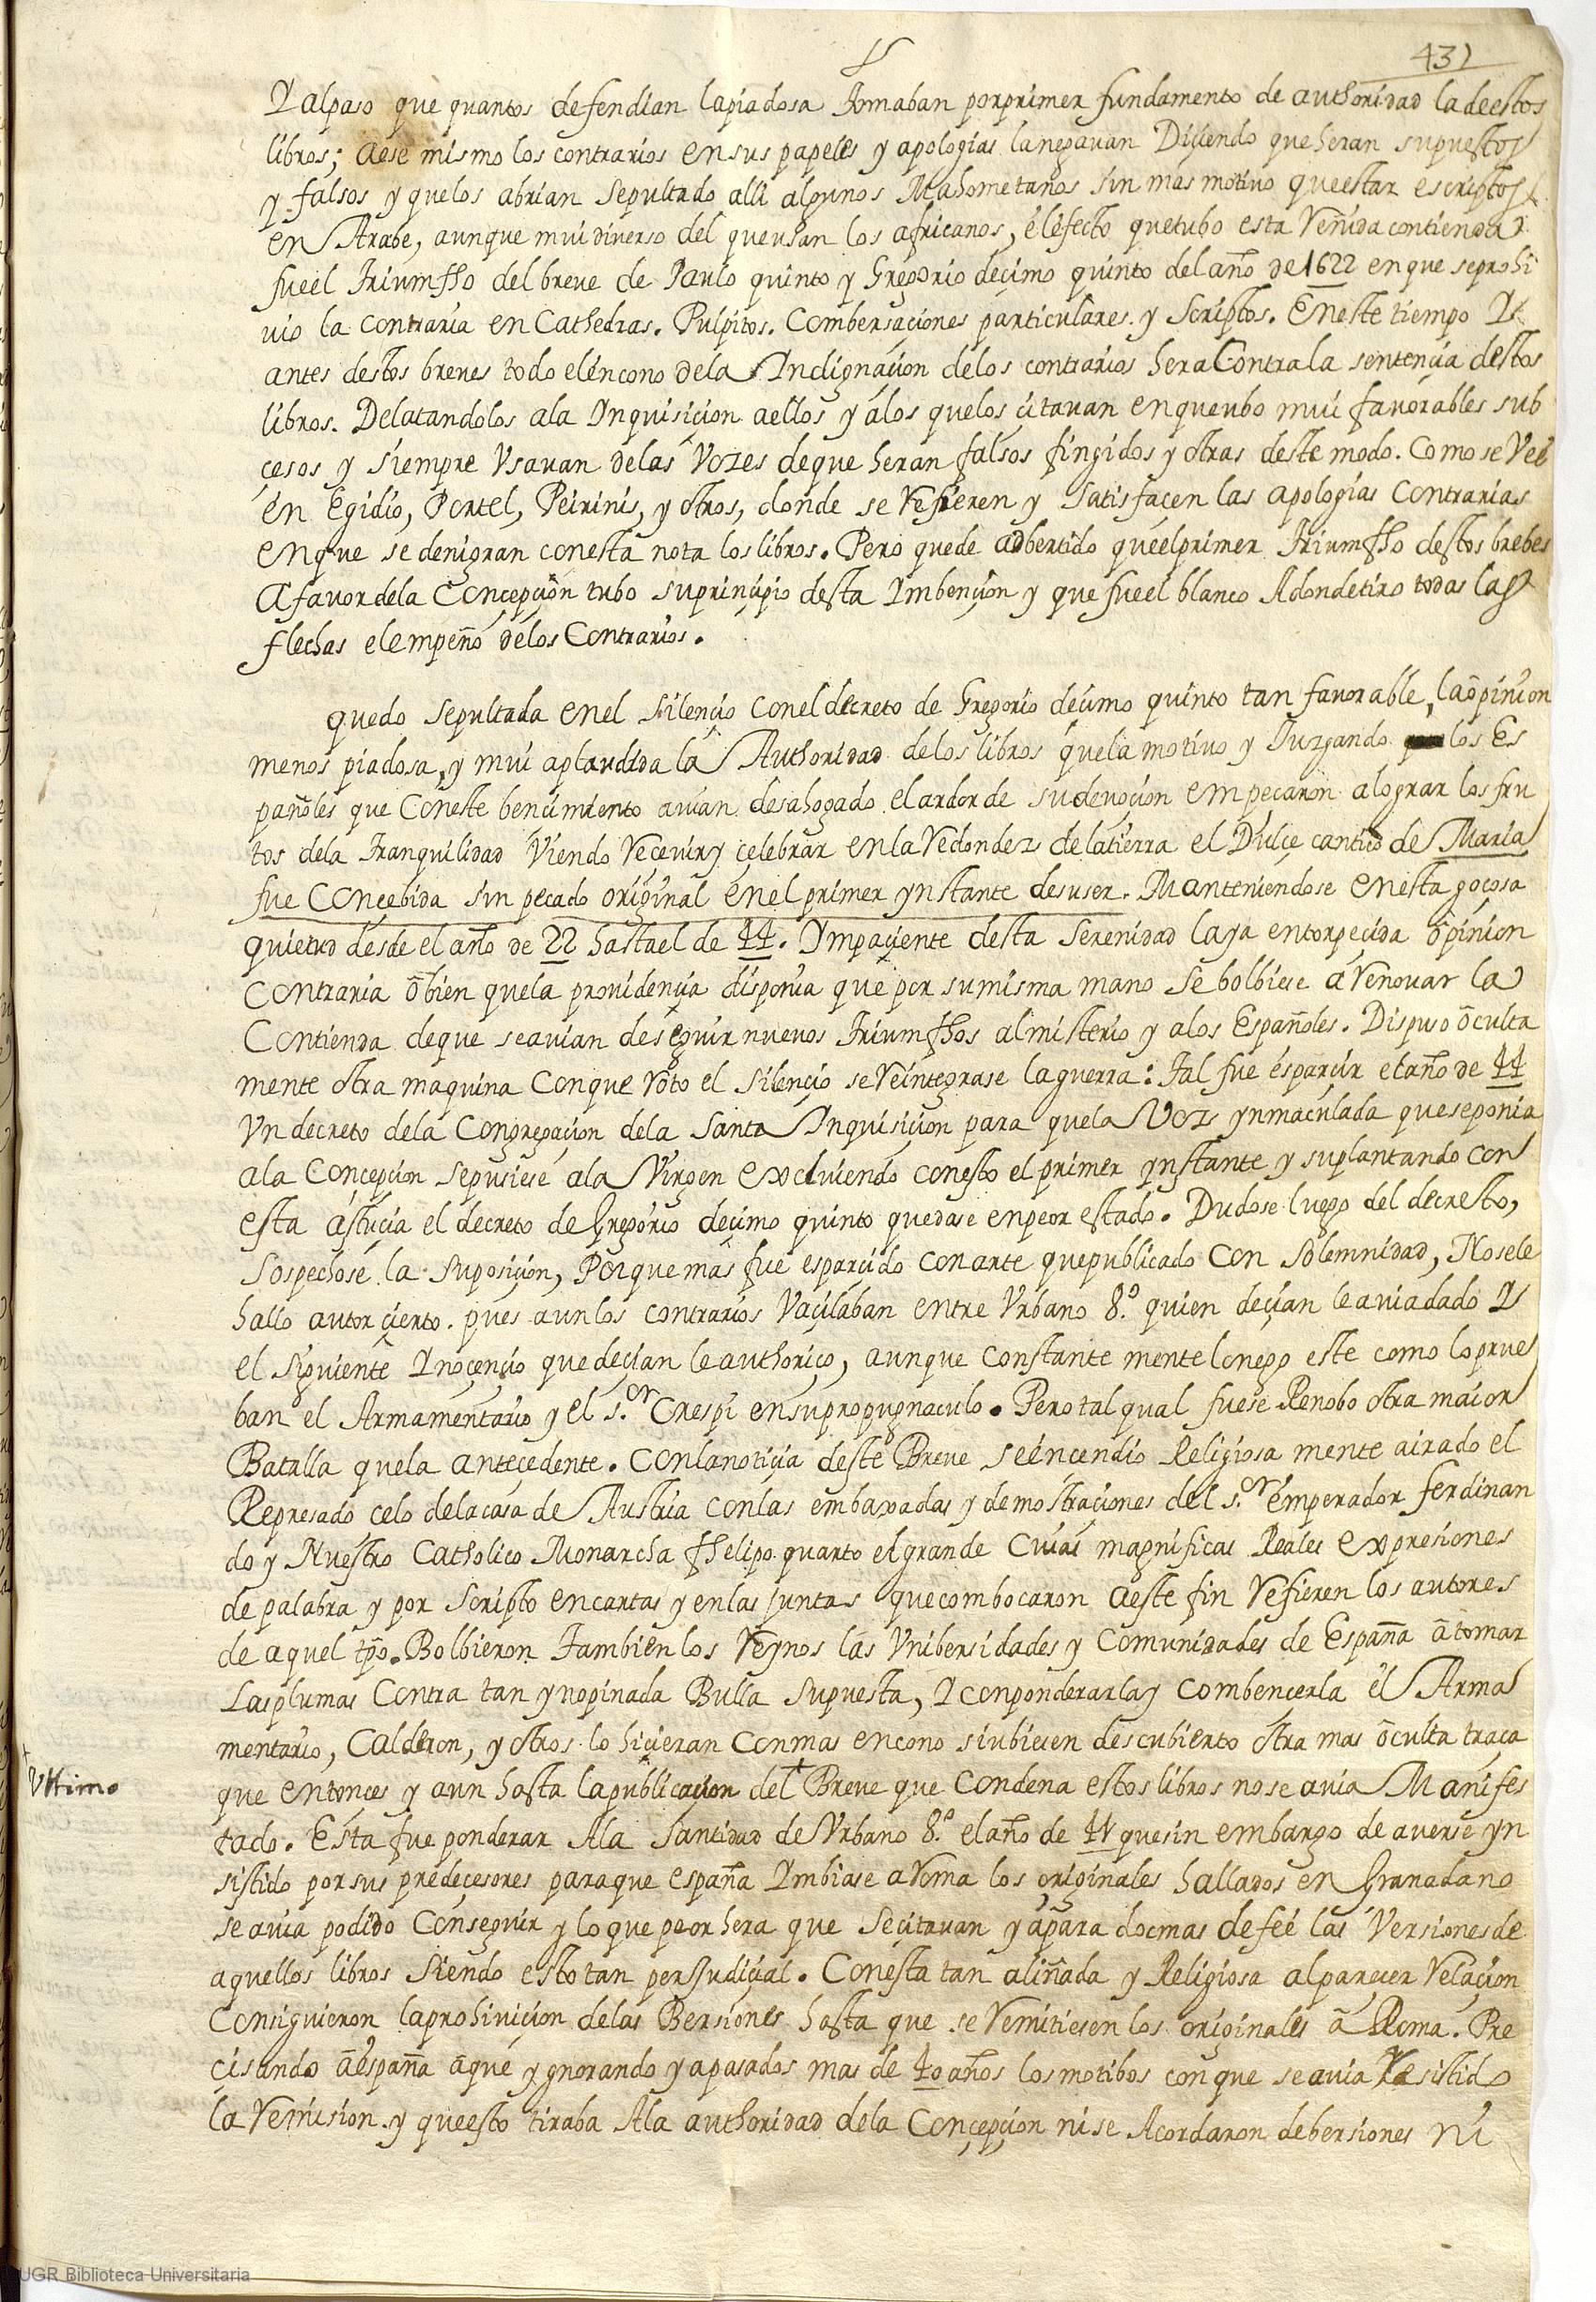 431
Y alpaso que quantos defendian lapiadosa tomaban porprimer fundamento de authoridad ladeestos
libros; aese mismo los contrarios ensus papeles y apologias lanegauan Diçiendo queheran supuestos
y falsos y quelos abrian sepultado alli algunos Mahometanos sin mas motiuo queestar escriptos
en Arabe, aunque mui diuerso del queusan los africanos, el efecto quetubo esta Reñida contienda
fueel triumfho del breue de Paulo quinto y Gregorio deçimo quinto del año de 1622 en que seprohi
uio la contraria en Cathedras. Pulpitos. Combersaçiones particulares. y Scriptos. En este tiempo Y
antes destos breues todo elencono dela Indignaçion delos contrarios hera Contra la sentençia destos
libros. Delatandolos ala Ynquisiçion aellos y álos quelos çitauan enqueubo mui fauorables sub
cesos y siempre Vsauan delas Vozes deque heran falsos fingidos y otras deste modo. Como se Vee
en Egidio, Portel, Peirinis, y otros, donde se Refieren y satisfaçen las apologias Contrarias
enque se denigran conesta nota los libros. Pero quede adbertido queelprimer triumfho destos brebes
Afauor dela Concepçion tubo suprinçipio desta Ymbençion y que fueel blanco Adondetiro todas las
flechas elempeño delos Contrarios.
quedo sepultada enel silençio conel decreto de Gregorio deçimo quinto tan fauorable, la opinion
menos piadosa, y mui aplaudida la Authoridad delos libros quela motiuo y Juzgando los Es
pañoles que Coneste bençimiento auian desahogado elardor de sudeuoçion empeçaron alograr los fru
tos dela tranquilidad Viendo Reçeuir y çelebrar enla Redondez dela tierra el Dulçe cantico de Maria
fue Concebida sin pecado original enel primer ynstante desuser. Manteniendose enesta goçosa
quietud desde el año de 22 hastael de 44. Ympaçiente desta serenidad laya entorpeçida opinion
Contraria ō bien quela prouidençia disponia que por sumisma mano se bolbiese á Renouar la
Contienda deque seauian deseguir nuevos triumfhos almisterio y alos Españoles. Dispuso oculta
mente otra maquina Conque roto el silençio se Reintegrase laguerra: Tal fue esparçir el año de 44
Vn decreto dela Congregaçion dela Santa Ynquisiçion para quela Voz ynmaculada queseponia
ala Concepçion sepusiese ala Virgen excluiendo conesto el primer ynstante y suplantando con
esta astuçia el decreto de Gregorio deçimo quinto quedase enpeor estado. Dudose luego del decreto,
Sospechose la Suposiçion, Porque mas fue esparçido conarte quepublicado con solemnidad, Nosele
hallo autor çierto. pues aunlos contrarios Vaçilaban entre Vrbano 8.º quien deçian leauiadado Y
el siguiente Ynoçençio que deçian le authoriço, aunque constantemente lonego este como lo prue
ban el Armamentario y el s.or Crespi ensupropugnaculo. Pero tal qual fuese Renobo otra maior
Batalla quela antecedente. Conlanotiçia deste Breue seençendio Religiosa mente airado el
Represado celo delacasa de Austria conlas embaxadas y demostraçiones del s.or emperador ferdinan
do y Nuestro Catholico Monarcha fhelipo quarto elgrande Cuias magnificas Reales expresiones
de palabra y por scripto encartas y enlas juntas quecombocaron aeste fin Refieren los autores
de aquel tpo. Bolbieron tambien los Reynos las Vnibersidades y Comunidades de España ā tomar
Lasplumas Contra tan ynopinada Bulla supuesta, Y conponderarla y combencerla el Arma
mentario, Calderon, y otros lo hiçieran conmas encono siubiesen descubierto otra mas oculta traça
que entonces y aun hasta lapublicaçion del + Breue que Condena estos libros nose auia Manifes
+ Vltimo
tado. Esta fue ponderar Ala Santidad de Vrbano 8.º el año de 44 quesin embargo de auerse yn
sistido por sus predeçesores paraque españa Ymbiase aRoma los originales hallados en Granada no
se auia podido Conseguir y lo que peor hera que seçitauan yapara docmas defeé las Versiones de
aquellos libros siendo esto tan perjudiçial. Conesta tan aliñada y Religiosa alpareçer Relaçion
Consiguieron laprohiuiçion delas Bersiones hasta que se Remitiesen los originales ā Roma. Pre
cisando ā españa āque ygnorando yapasados mas de 40 años los motibos con que seauia Resistido
la Remision y queesto tiraba Ala authoridad dela Conçepçion nise Acordaron debersiones ni
UGR Biblioteca Universitaria